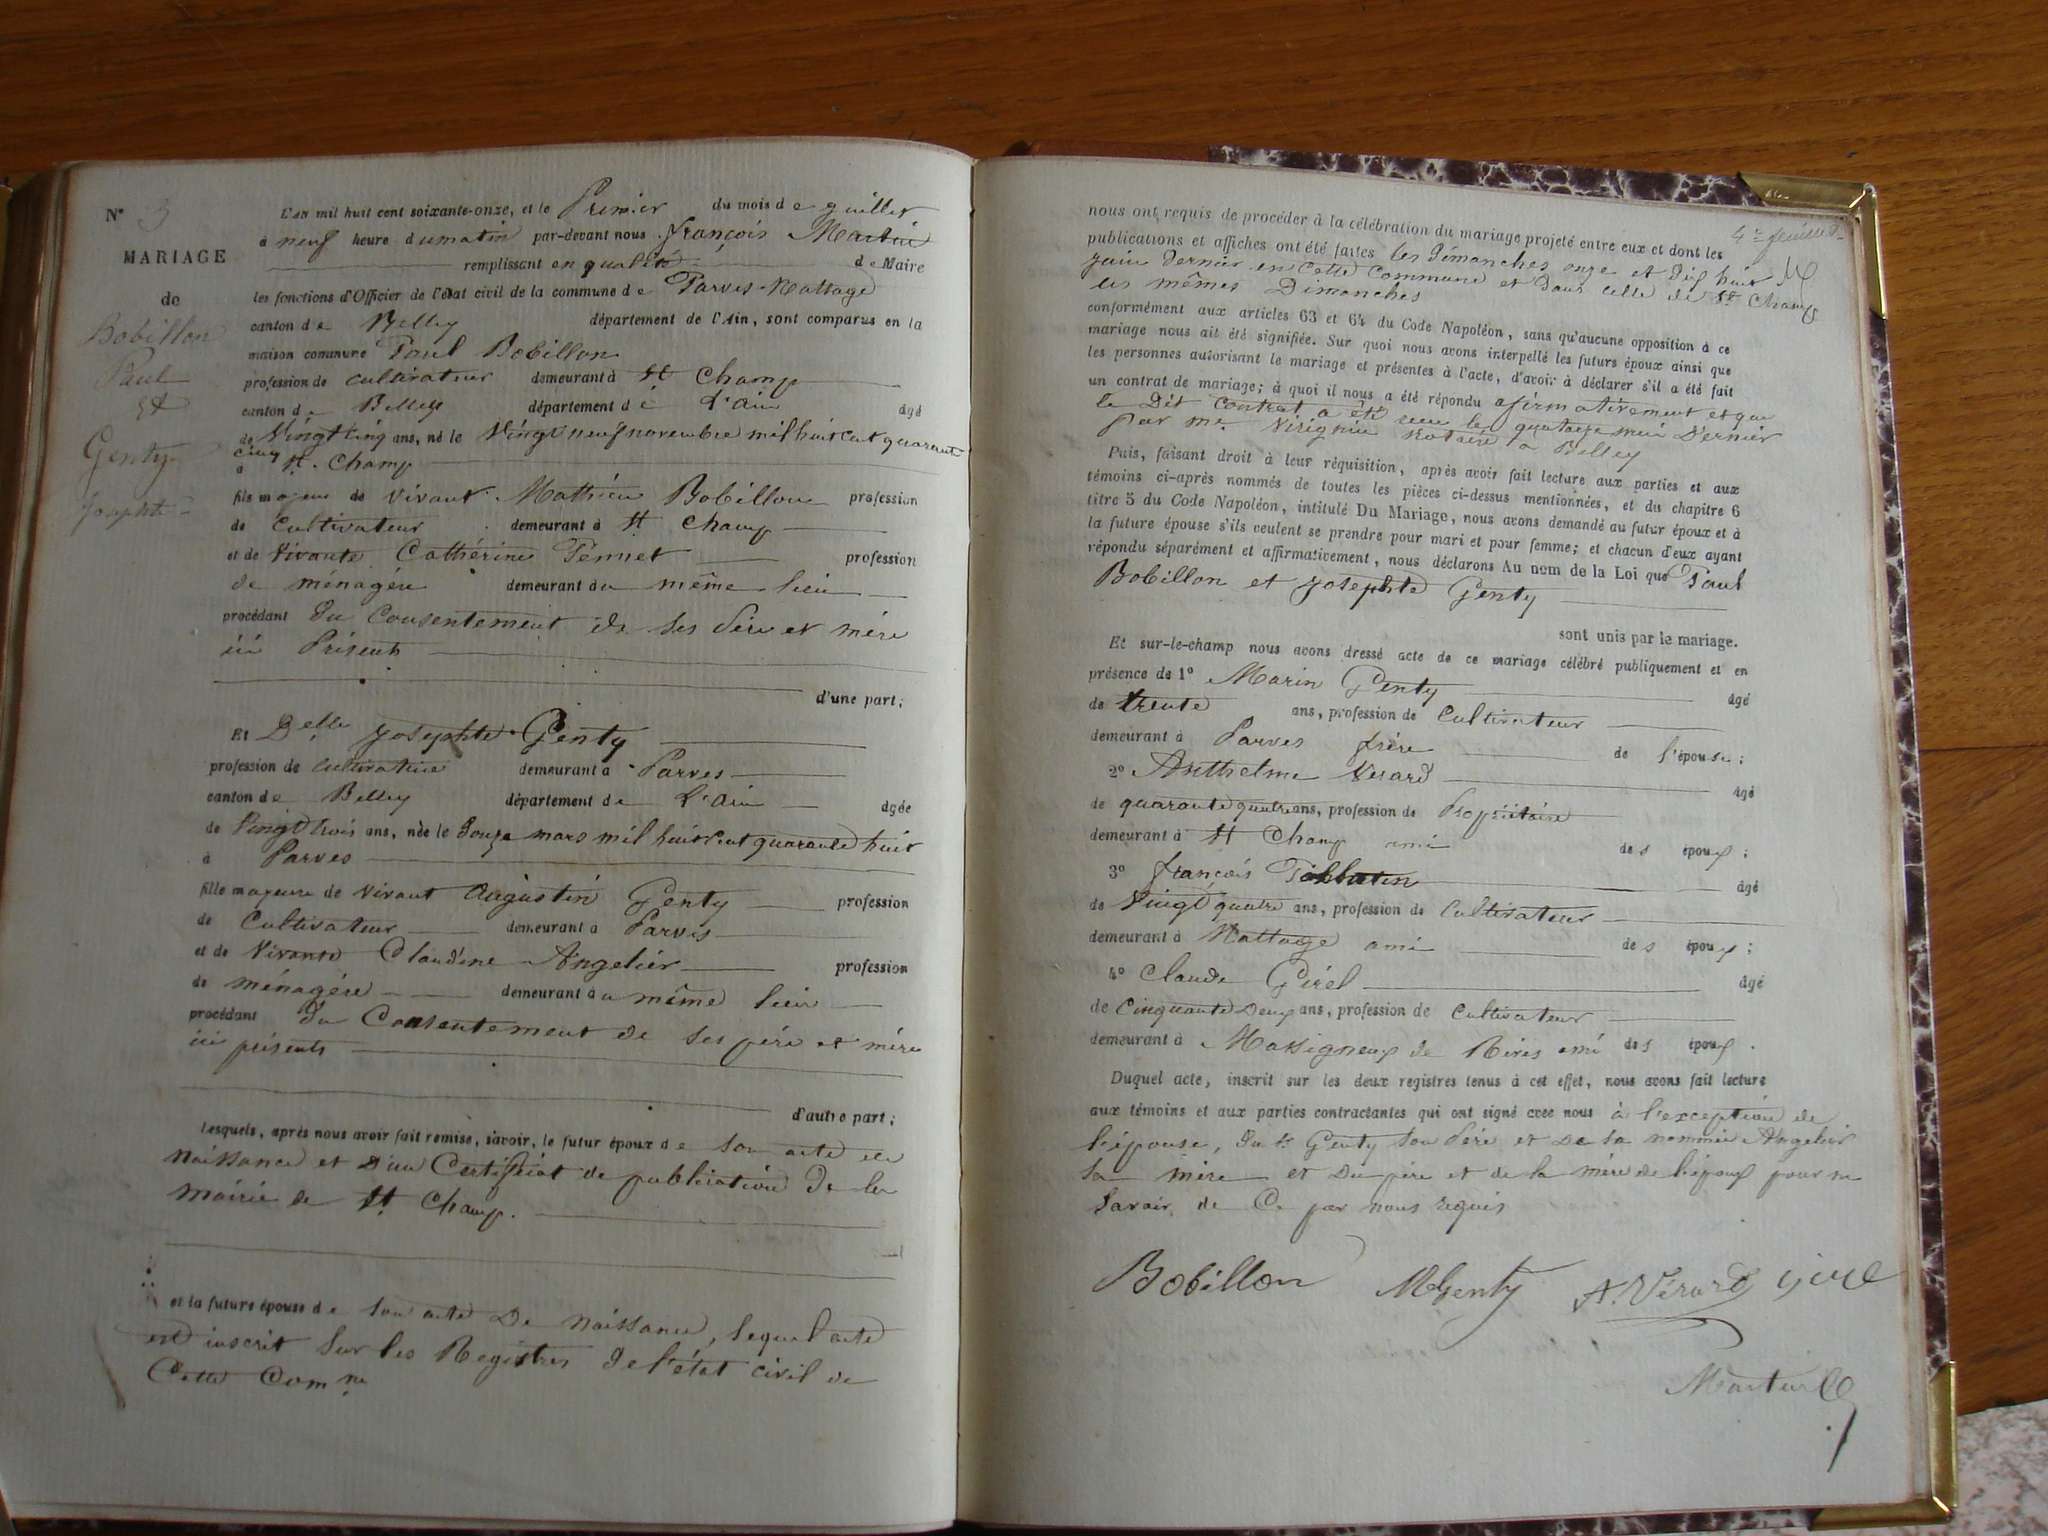 N° 3
MARIAGE
de
Bobillon
Paul
et
Genty
Josephte
L'an mil huit cent soixante-onze, et le Premier du mois de juillet
à neuf heure du matin par-devant nous françois Martin
remplissant en qualité de Maire
les fonctions d'Officier de l'état civil de la commune de Parves-Nattage
canton de Belley département de l'Ain, sont comparus en la
maison commune Paul Bobillon
profession de cultivateur demeurant à St Champ
canton de Belley département de L'ain âgé
de Vingt cinq ans, né le Vingt neuf novembre mil huit cent quarante
cinq
à St. Champ
fils majeur de vivant Mathieu Bobillon profession
de Cultivateur demeurant à St Champ
et de Vivante Cathérine Pennet profession
de ménagére demeurant au même lieu
procédant du Consentement de ses Père et mére
ici Présents
d'une part;
Et Delle Josephte Genty
profession de cultivatrice demeurant à Parves
canton de Belley département de L'ain âgée
de Vingt trois ans, née le Douze mars mil huit cent quarante huit
à Parves
fille majeure de vivant Augustin Genty profession
de Cultivateur demeurant à Parves
et de Vivante Claudine Angelier profession
de ménagére demeurant au même lieu
procédant du Consentement de ses père et mére
ici présents
d'autre part;
Lesquels, après nous avoir fait remise, savoir, le futur époux de son acte de
naissance et d'un Certificat de publication de la
mairie de St Champ.
et la future épouse de son acte De Naissance, lequel acte
est inscrit sur les Registres de l'état civil de
Cette Comne
4e feuillet
nous ont requis de procéder à la célébration du mariage projeté entre eux et dont les
publications et affiches ont été faites les Dimanches onze et dix huit
juin Dernier en Cette Commune et dans celle de St Champ
les mêmes Dimanches
conformément aux articles 63 et 64 du Code Napoléon, sans qu'aucune opposition à ce
mariage nous ait été signifiée. Sur quoi nous avons interpellé les futurs époux ainsi que
les personnes autorisant le mariage et présentes à l'acte, d'avoir à déclarer s'il a été fait
un contrat de mariage; à quoi il nous a été répondu afirmativement et que
le Dit Contrat a été recu le quatorze mai Dernier
par me. Virignin Notaire a Belley
Puis, faisant droit à leur réquisition, après avoir fait lecture aux parties et aux
témoins ci-après nommés de toutes les pièces ci-dessus mentionnées, et du chapitre 6
titre 5 du Code Napoléon, intitulé Du Mariage, nous avons demandé au futur époux et à
la future épouse s'ils veulent se prendre pour mari et pour femme; et chacun d'eux ayant
répondu séparément et affirmativement, nous déclarons Au nom de la Loi que Paul
Bobillon et Josephte Genty
sont unis par le mariage.
Et sur-le-champ nous avons dressé acte de ce mariage célébré publiquement et en
présence de 1° Marin Genty âgé
de trente ans, profession de Cultivateur
demeurant à Parves frère de l'épouse;
2° Anthelme Verard âgé
de quarante quatre ans, profession de Propriétaire
demeurant à St Champ ami des époux;
3° françois âgé
de Vingt quatre ans, profession de Cultivateur
demeurant à Nattage ami des époux;
4° Claude Girel âgé
de Cinquante Deux ans, profession de Cultivateur
demeurant à Massigneux de Rives ami des époux.
Duquel acte, inscrit sur les deux registres tenus à cet effet, nous avons fait lecture
aux témoins et aux parties contractantes qui ont signé avec nous à l'exception de
l'épouse, du sr Genty son Père et De la nommée Angelier
sa mère et Du père et de la mère de l'époux pour ne
Savoir, de Ce par nous requis
Bobillon MGenty A. Vérard girel
Martin